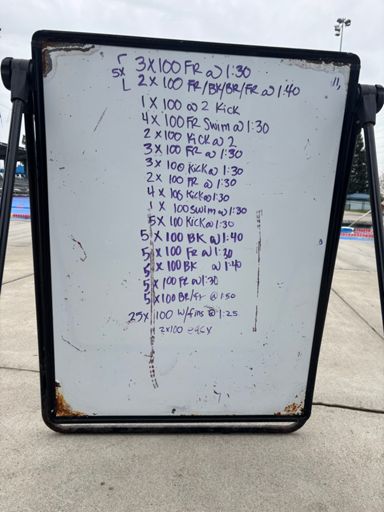 5x [ 3 x 100 FR @ 1:30
2 x 100 FR/BK/BR/FR @ 1:40
1 x 100 @ 2 Kick
4 x 100 FR Swim @ 1:30
2 x 100 Kick @ 2
3 x 100 FR @ 1:30
3 x 100 Kick @ 1:30
2 x 100 FR @ 1:30
4 x 100 Kick @ 1:30
1 x 100 Swim @ 1:30
5 x 100 Kick @ 1:30
5 x 100 BK @ 1:40
5 x 100 FR @ 1:30
5 x 100 BK @ 1:40
5 x 100 FR @ 1:30
5 x 100 BR/Fr @ 1:50
25x 100 w/fins @ 1:25
2x100 easy